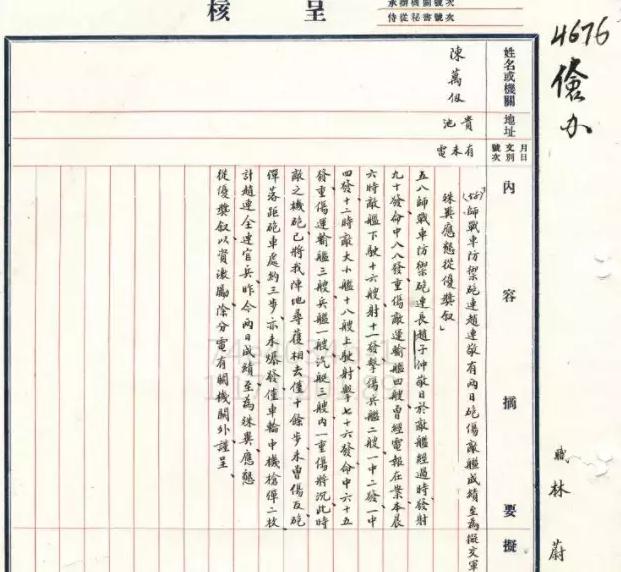 呈核
承辦機關號次
侍從秘書號次
4676
办
職林蔚
姓名或機關
地址
月日
文別
號次
內容摘要
擬
陳萬仞
貴池
有未電
師戰車防禦砲連趙連敬有兩日砲傷敵艦成績至為擬交軍
殊異應懇從優獎叙」
五八師戰車防禦砲連長趙子沖敬日於敵艦經過時發射
九十發命中八八發重傷敵運輸艦四艘曾經電報在案本晨
六時敵艦下駛十六艘射十一發擊傷兵艦二艘一中二發一中
四發十二時敵大小艦十八艘上駛射擊七十六發命中六十五
發重傷運輸艦三艘兵艦一艘汽艇三艘內一重傷將沉此時
敵之機砲已將我陣地尋獲相去僅十餘步未曾傷及砲
彈落距砲車處約三步亦未爆發僅車輪中機槍彈二枚
計趙連全連官兵昨今兩日成績至為殊異應懇
從優獎叙以資激勵除分電有關機關外謹呈